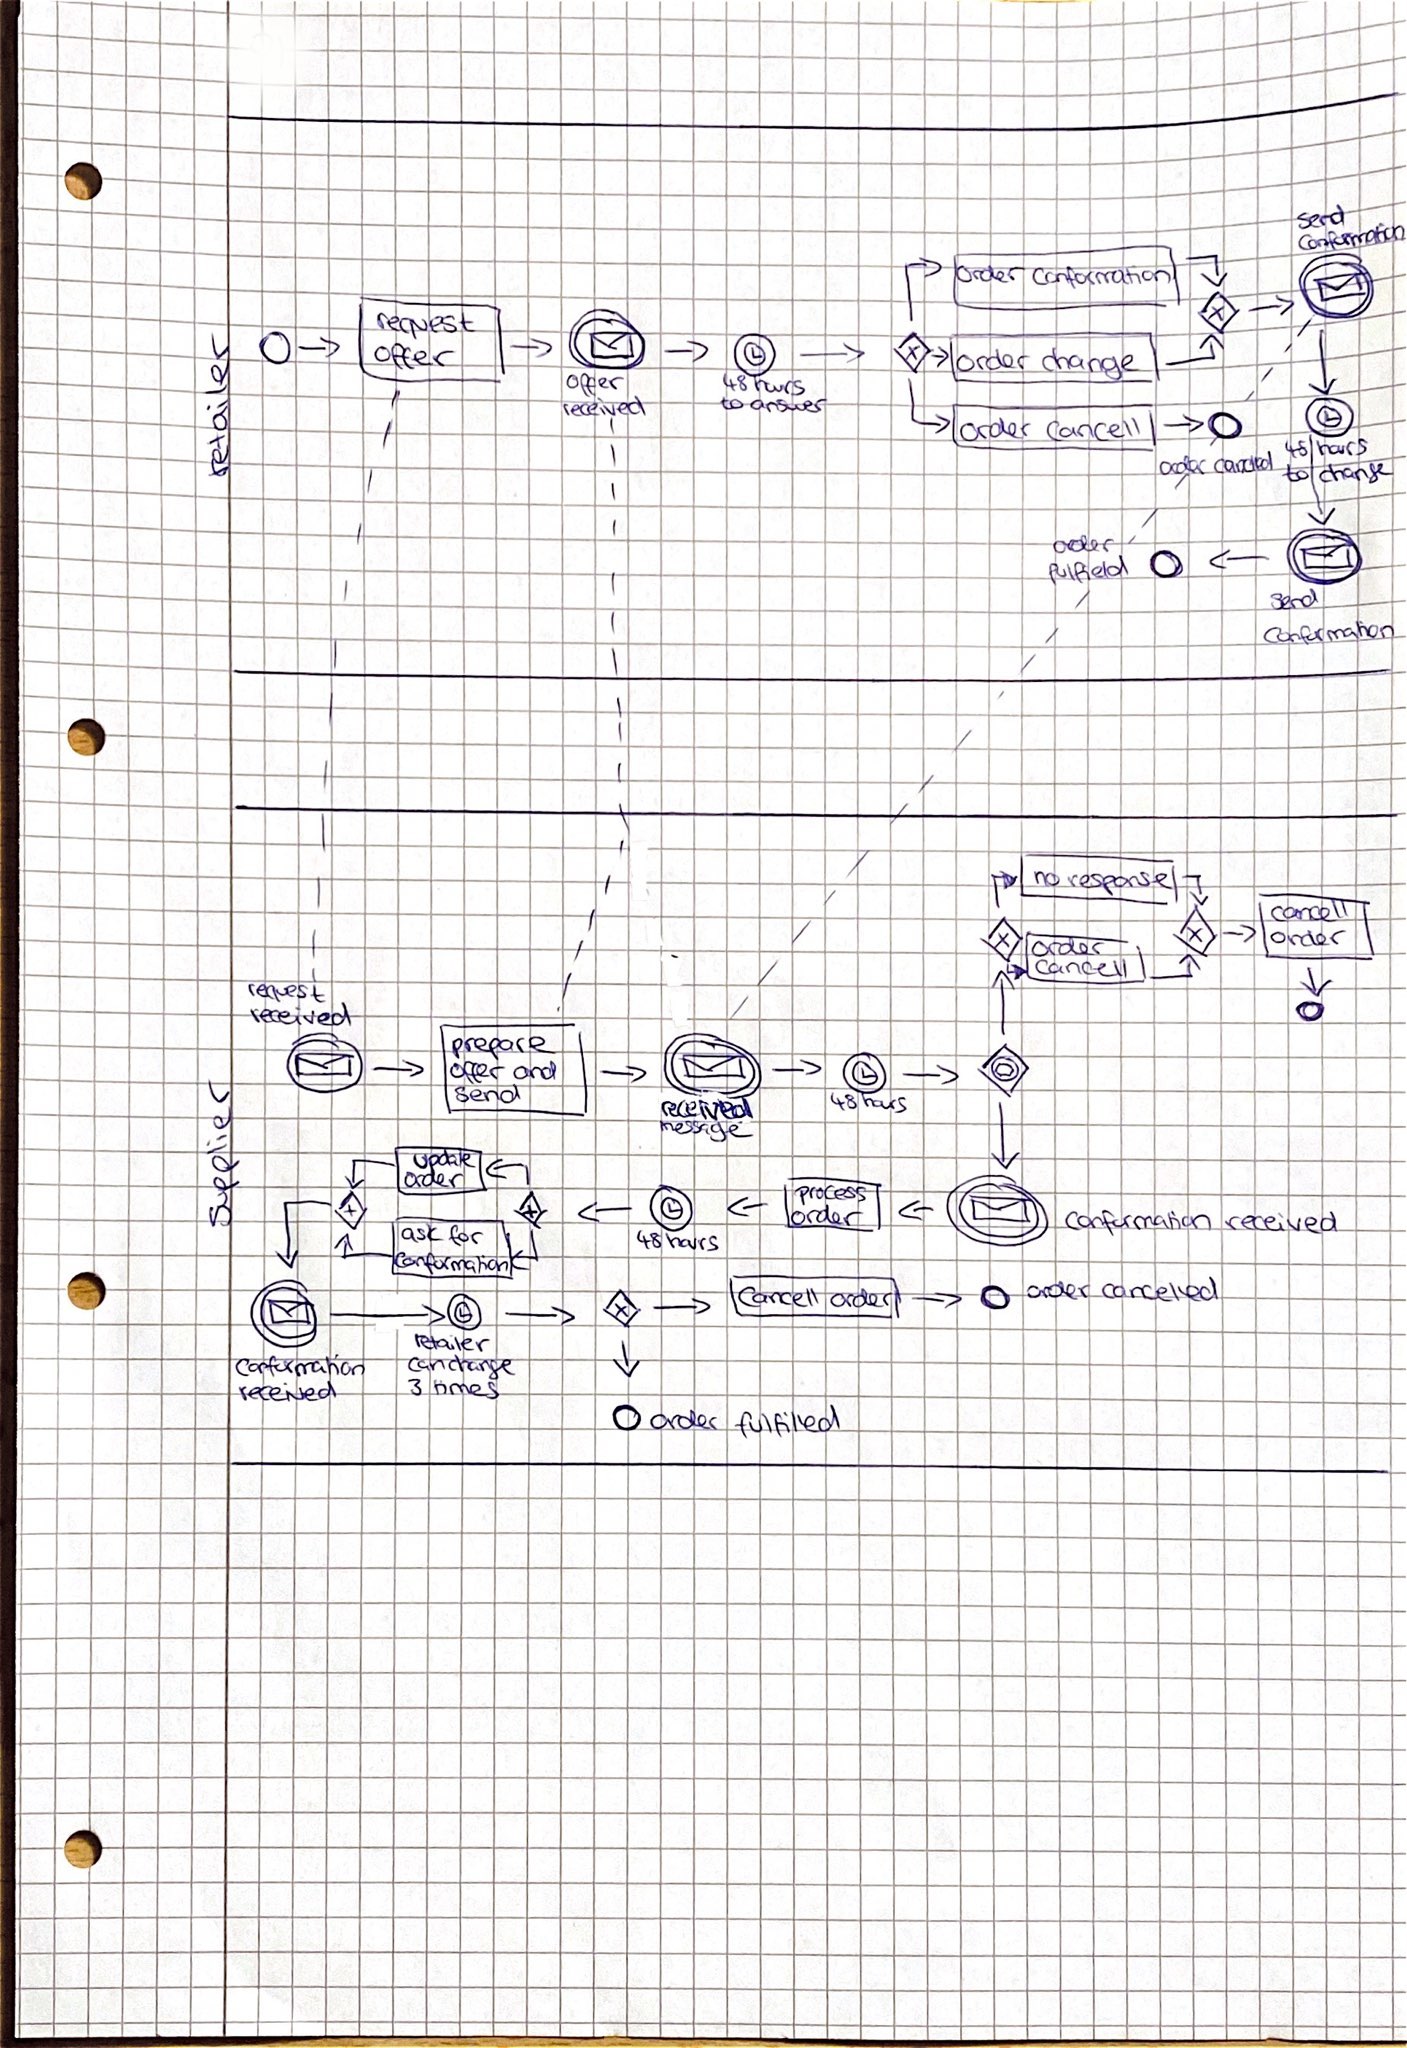 retailer
request
offer
offer
received
48 hours
to answer
order conformation
order change
order cancell
order canceled
send
conformation
48 hours
to change
send
conformation
order
fulfield
Supplier
request
received
prepare
offer and
send
received
message
48 hours
no response
order
cancell
cancell
order
conformation received
process
order
48 hours
update
order
ask for
conformation
conformation
received
retailer
can change
3 times
Cancell order
order cancelled
order fulfilled